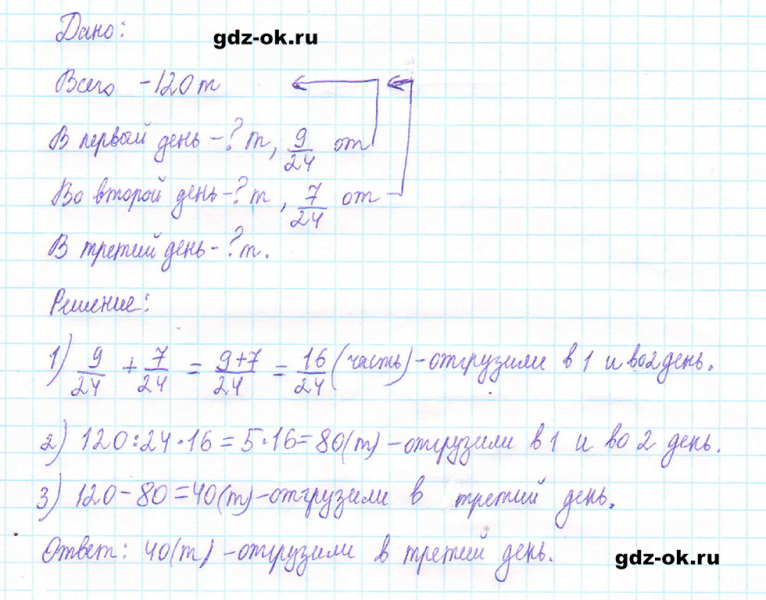 Дано:
gdz-ok.ru
Всего - 120 т
В первый день - ? т, 9/24 от
Во второй день - ? т, 7/24 от
В третий день - ? т.
Решение:
1) 9/24 + 7/24 = 9+7/24 = 16/24 (часть) - отгрузили в 1 и во 2 день.
2) 120:24·16=5·16=80(т) - отгрузили в 1 и во 2 день.
3) 120-80=40(т) - отгрузили в третий день.
Ответ: 40(т) - отгрузили в третий день.
gdz-ok.ru